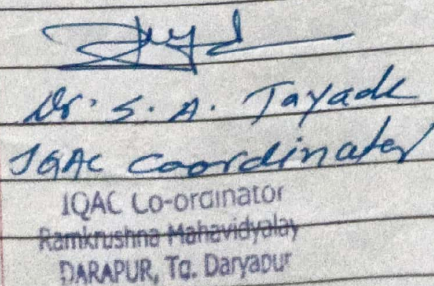 Dr. S. A. Tayade
IQAC Coordinator
IQAC Co-ordinator
Ramkrushna Mahavidyalay
DARAPUR, Tq. Daryapur